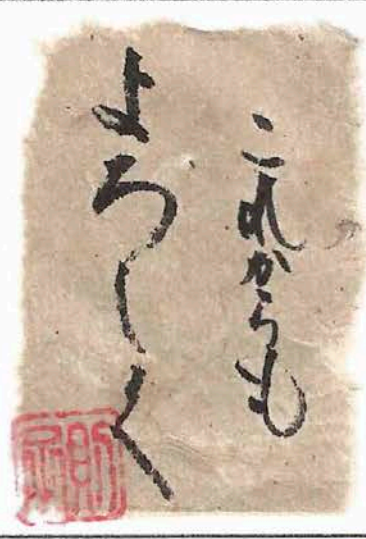 これからも
よろしく